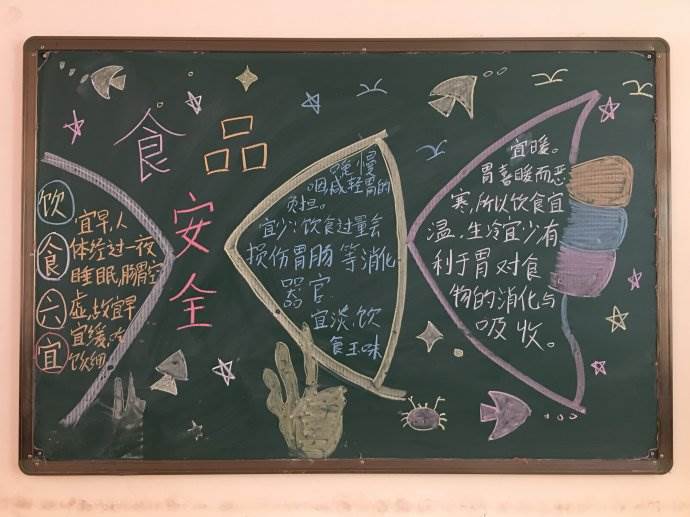 食品
安全
饮食六宜
宜早,人
体经过一夜
睡眠,肠胃空
虚,故宜早
宜缓,吃
饭细
嚼慢
咽,减轻胃的
负担。
宜少:饮食过量会
损伤胃肠等消化
器官
宜淡,饮
食五味
宜暖。
胃喜暖而恶
寒,所以饮食宜
温,生冷宜少有
利于胃对食
物的消化与
吸收。